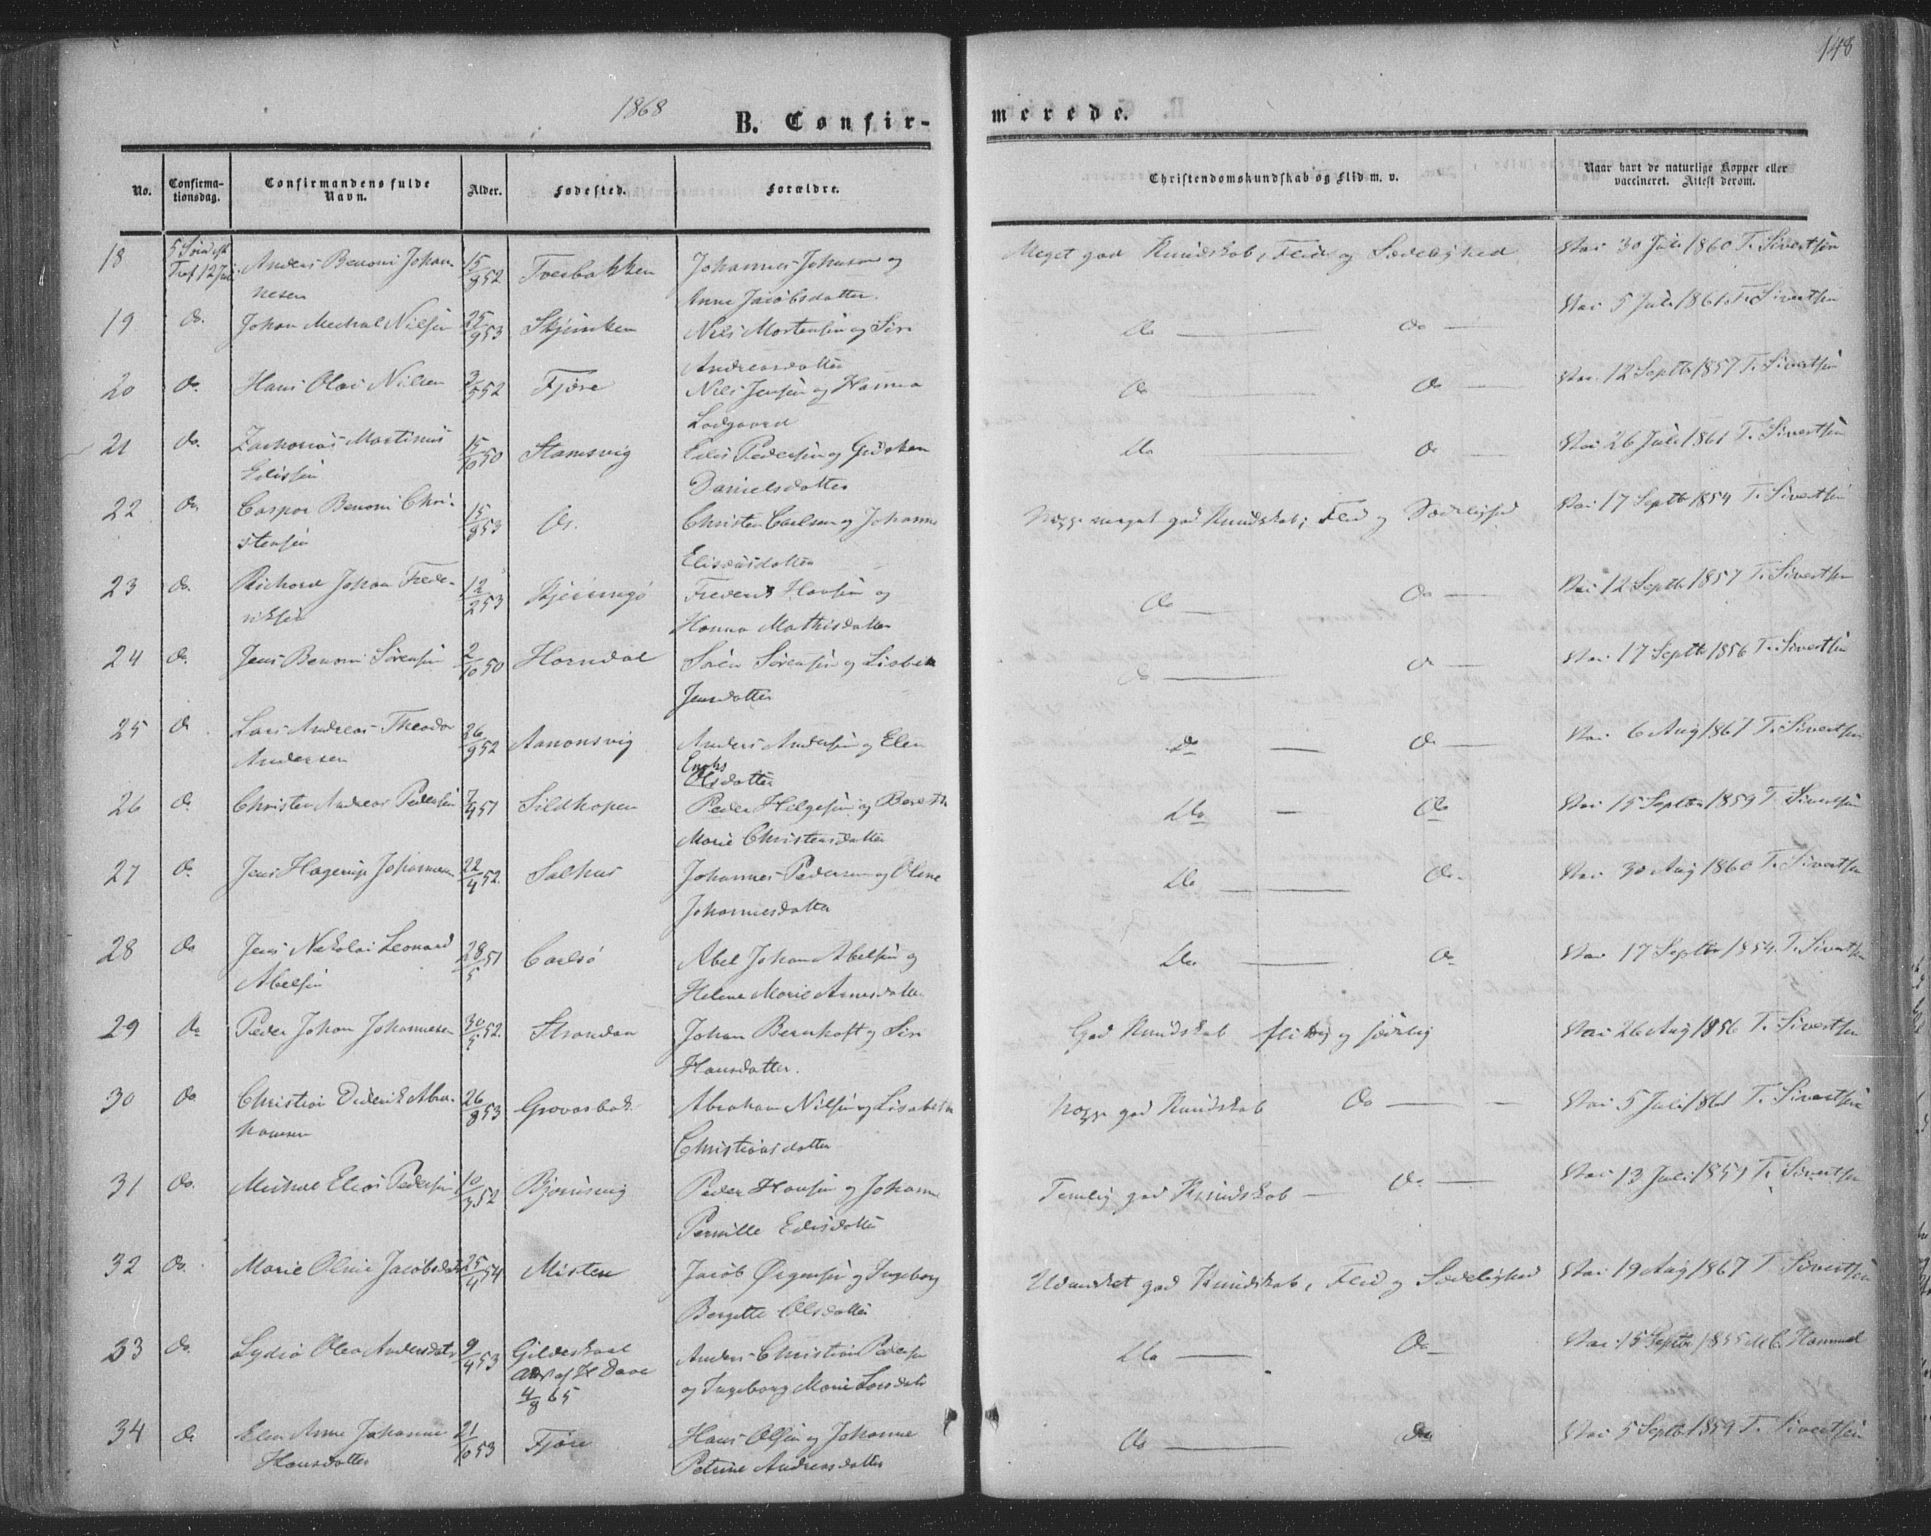 148
1868
B. Confirmerede.
No. Confirmationsdag. Confirmandens fulde Navn. Alder. Fødested. Forældre. Christendomskundskab og Flid m. v. Naar havt de naturlige Kopper eller vaccineret. Attest derom.
18 5 Sønd. eft. Tref 12 Juli Anders Benoni Johan- 15/9 52 Tverbakken Johannes Johnsen og Meget god Kundskab, Flid og Sædelighed Vac 30 Juli 1860 T. Sivertsen
nesen Anne Jacobsdatter.
19 do. Johan Michal Nilsen 25/9 53 Skjevuken Nils Mortensen og Siri Do — Do — Vac 5 Juli 1861 T. Sivertsen
Andreasdatter
20 do Hans Olai Nilsen 3/5 52 Fjøre Nils Jensen og Hanna Do — Do — Vac. 12 Septb 1857 T. Sivertsen
Lodgaard
21 do. Zacharias Martinus 15/10 50 Stamsvig Edis Pedersen og Gjøsken Do — Do — Vac 26 Juli 1861 T. Sivertsen
Edissen Danielsdatter
22 do. Caspar Benoni Chri- 15/8 53 do. Christen Carlsen og Johanna Nogg meget god Kundskab, Flid og Sædelighed Vac 17 Septb 1854 T. Sivertsen
stensen Eliseusdatter
23 do. Richard Johan Frede- 12/2 53 Skjerringø Frederik Hansen og Do — Do — Vac 12 Septb 1857 T. Sivertsen
riksen Hanna Mathisdatter
24 d. Jens Benoni Sørensen 2/10 50 Horndal Søren Sørensen og Lisbeth Do — Do — Vac 17 Septb 1856 T. Sivertsen
Jensdatter
25 do Lars Andreas Theodor 26/9 52 Aanonsvig Anders Andersen og Elen Do — Do — Vac 6 Aug 1867 T. Sivertsen
Andersen Enoks
Olsdatter
26 d. Christen Andreas Pedersen 7/4 51 Sildhopen Peder Helgesen og Bereth Do — Do Vac 15 Septb 1859 T. Sivertsen
Marie Christensdatter
27 do Jens Hagerup Johannesen 22/4 52. Salhus Johannes Pedersen og Oline Do — Do. Vac 30 Aug 1860 T. Sivertsen
Johannesdatter
28 do Jens Nikolai Leonard 28/5 51 Carlsø Abel Johan Abelsen og Do — Do Vac 17 Septbr 1854. T. Sivertsen
Abelsen Helene Marie Arnesdatter
29 do Peder Johan Johannesen 30/5 52. Strandaa Johan Bernhoft og Siri God Kundskab flittig og sædelig Vac 26 Aug 1856 T. Sivertsen
Hansdatter.
30 do Christian Diderik Abra- 26/8 53 Grovasbak Abraham Nilsen og Lisabeth Nogg god Kundskab Do — Vac 5 Juli 1861 T. Sivertsen
hamsen Christiansdatter
31 do. Michael Elias Pedersen 10/3 52 Bjørnsvig Peder Hansen og Johanna Temlig god Kundskab — Do. — Vac 13 Juli 1857 T. Sivertsen
Pernille Edisdatter
32 do. Marie Oline Jacobsdatr 25/4 54 Misten Jacob Ørgensen og Ingeborg Udmerket god Kundskab, Flid og Sædelighed Vac 19 Aug 1867 T. Sivertsen
Bergitte Olsdatter
33 do. Lydia Olea Andersdatr 9/4 53 Gildeskaal Anders Christian Pedersen Do — Do Vac 15 Septb 1855 M C Hammel
og Ingeborg Marie Larsdatr
4/8 65
34 do Elen Anne Johanne 21/10 53 Fjøre Hans Olsen og Johanne Do — Do Vac 5 Septb 1859 T. Sivertsen
Hansdatter Petrine Andreasdatter